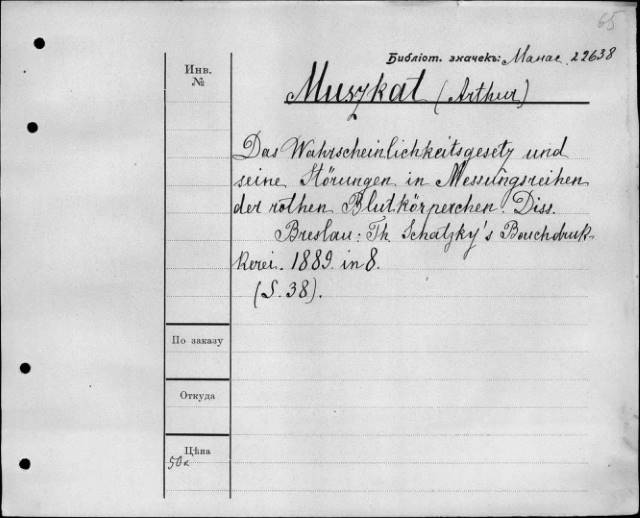 65
Библіот. значекъ: Манас. 22638
Инв.
№
Muszkat (Arthur)
Das Wahrscheinlichkeitsgesetz und
seine Störungen in Messungsreihen
der rothen Blutkörperchen. Diss.
Breslau: Th. Schatzky's Bouchdruk-
kerei. 1889. in 8.
(S. 38).
По заказу
Откуда
Цѣна
50к